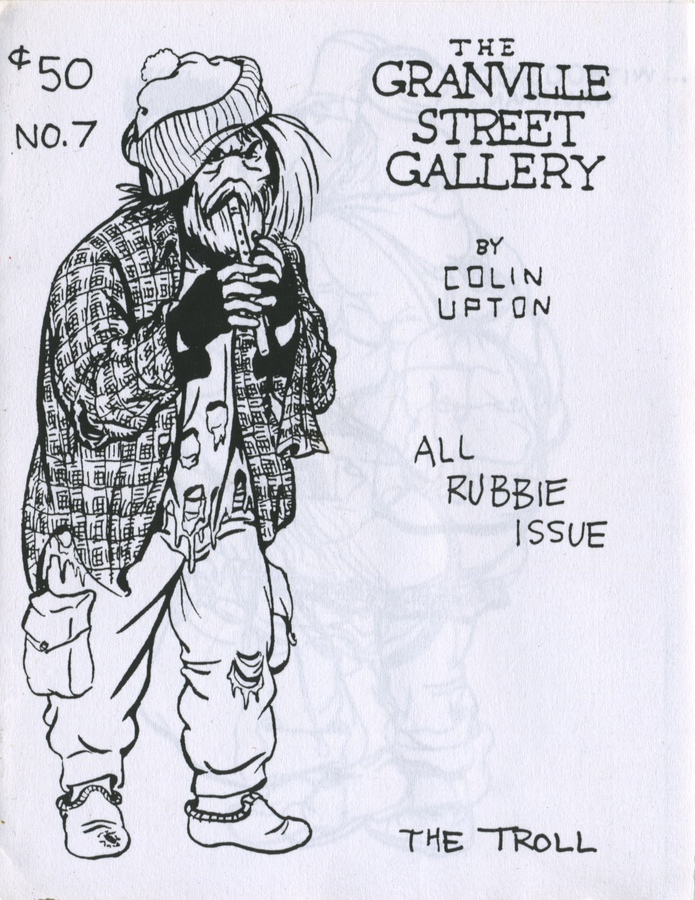 ¢50
NO.7
THE
GRANVILLE
STREET
GALLERY
BY
COLIN
UPTON
ALL
RUBBIE
ISSUE
THE TROLL